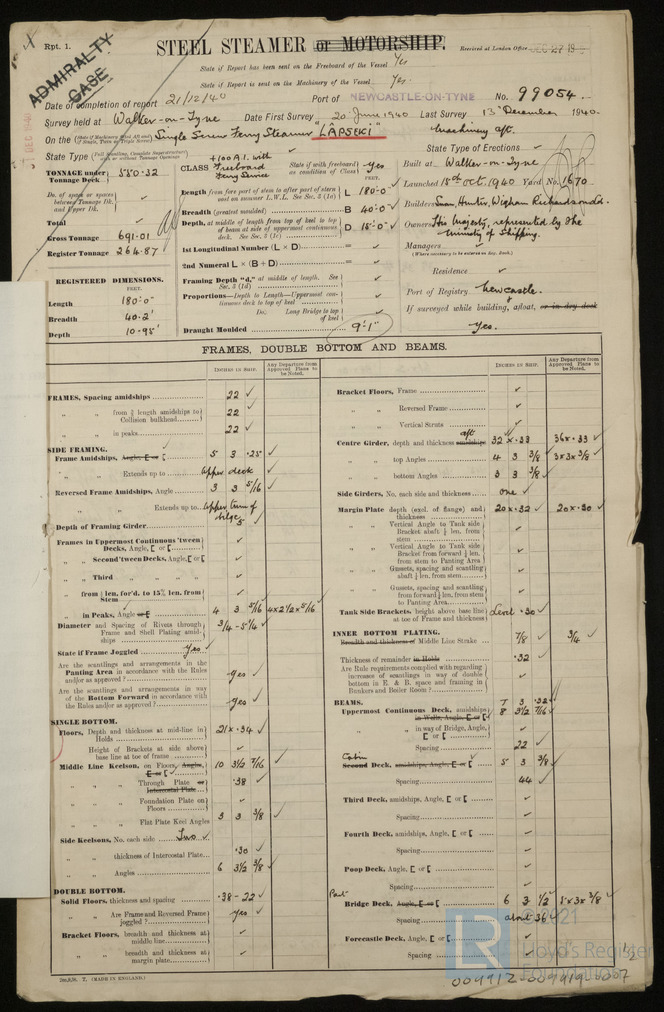 Rpt. 1.
STEEL STEAMER or MOTORSHIP.
Received at London Office DEC 27 19
ADMIRALTY CASE
State if Report has been sent on the Freeboard of the Vessel Yes
State if Report is sent on the Machinery of the Vessel Yes.
Date of completion of report 21/12/40 Port of NEWCASTLE-ON-TYNE No. 99054.
Survey held at Walker-on-Tyne Date First Survey 20 June 1940 Last Survey 13th December 1940.
On the Single Screw Ferry Steamer "LÂPSEKI" Machinery aft.
State Type
State Type of Erections
TONNAGE under Tonnage Deck 550.32
Do. of space or spaces between Tonnage Dk. and Upper Dk.
Total
Gross Tonnage 691.01
Register Tonnage 264.87
REGISTERED DIMENSIONS.
FEET.
Length 180.0'
Breadth 40.2'
Depth 10.95'
CLASS +100 A.1. with Freeboard Ferry Service
State if with freeboard as condition of Class Yes
FEET.
Length from fore part of stem to after part of stern post on summer L.W.L. See Sec. 3 (1a) L 180.0
Breadth (greatest moulded) B 40.0
Depth, at middle of length from top of keel to top of beam at side of uppermost continuous deck. See Sec. 3 (1c) D 15.0
1st Longitudinal Number (L × D) =
2nd Numeral L × (B + D) =
Framing Depth "d," at middle of length. See Sec. 3 (1d)
Proportions—Depth to Length—Uppermost continuous deck to top of keel
Do. Long Bridge to top of keel
Draught Moulded 9'.1"
Built at Walker-on-Tyne
Launched 15th Oct. 1940 Yard No. 1670
Builders Swan, Hunter, Wigham Richardson & Ld.
Owners His Majesty, represented by the Ministry of Shipping.
Managers
(Where necessary to be entered on Reg. Book.)
Residence
Port of Registry Newcastle.
If surveyed while building, afloat, or in dry dock
Yes.
FRAMES, DOUBLE BOTTOM AND BEAMS.
INCHES IN SHIP.
Any Departure from Approved Plans to be Noted.
FRAMES, Spacing amidships 22
" " from 3/5 length amidships to Collision bulkhead 22
" " in peaks 22
SIDE FRAMING.
Frame Amidships, Angle, [ or [ 5 3 .25
" " Extends up to Upper deck
Reversed Frame Amidships, Angle 3 3 5/16
" " Extends up to Upper turn of bilge
Depth of Framing Girder
Frames in Uppermost Continuous 'tween Decks, Angle, [ or [
" Second 'tween Decks, Angle, [ or [
" Third " " "
" from 1/5 len. for'd. to 15% len. from Stem
" in Peaks, Angle or [ 4 3 5/16 4 x 2 1/2 x 5/16
Diameter and Spacing of Rivets through Frame and Shell Plating amidships 3/4 - 5 1/4
State if Frame Joggled Yes
Are the scantlings and arrangements in the Panting Area in accordance with the Rules and/or as approved? Yes
Are the scantlings and arrangements in way of the Bottom Forward in accordance with the Rules and/or as approved? Yes
SINGLE BOTTOM.
Floors, Depth and thickness at mid-line in Holds 21 x .34
Height of Brackets at side above base line at toe of frame
Middle Line Keelson, on Floors, Angle, [ or [ 10 3 1/2 7/16
" " Through Plate or Intercostal Plate .38
" " Foundation Plate on Floors
" " Flat Plate Keel Angles 3 3 3/8
Side Keelsons, No. each side Two
" " thickness of Intercostal Plate .30
" " Angles 6 3 1/2 3/8
DOUBLE BOTTOM.
Solid Floors, thickness and spacing .38 - 22
" " Are Frame and Reversed Frame joggled? Yes
Bracket Floors, breadth and thickness at middle line
" " breadth and thickness at margin plate
2m.9/38. T. (MADE IN ENGLAND.)
INCHES IN SHIP.
Any Departure from Approved Plans to be Noted.
Bracket Floors, Frame
" " Reversed Frame
" " Vertical Struts
Centre Girder, depth and thickness amidships aft 32 x .33 36 x .33
" " top Angles 4 3 3/8 3 x 3 x 3/8
" " bottom Angles 3 3 3/8
Side Girders, No. each side and thickness one
Margin Plate depth (excl. of flange) and thickness 20 x .32 20 x .30
" " Vertical Angle to Tank side Bracket abaft 1/4 len. from stem
" " Vertical Angle to Tank side Bracket from forward 1/4 len. from stem to Panting Area
" " Gussets, spacing and scantling abaft 1/4 len. from stem
" " Gussets, spacing and scantling from forward 1/4 len. from stem to Panting Area
Tank Side Brackets, height above base line at toe of Frame and thickness Level .30
INNER BOTTOM PLATING.
Breadth and thickness of Middle Line Strake 7/8 3/4
Thickness of remainder in Holds .32
Are Rule requirements complied with regarding increases of scantlings in way of double bottom in E. & B. space and framing in Bunkers and Boiler Room?
BEAMS.
Uppermost Continuous Deck, amidships in Wells, Angle, [ or [ 7 3 .32
8 3 1/2 7/16
" " in way of Bridge, Angle, [ or [
Spacing 22
Cabin Second Deck, amidships, Angle, [ or [ 5 3 3/8
Spacing 44
Third Deck, amidships, Angle, [ or [
Spacing
Fourth Deck, amidships, Angle, [ or [
Spacing
Poop Deck, Angle, [ or [
Spacing
Part Bridge Deck, Angle, [ or [ 6 3 1/2 5 x 3 x 3/8
Spacing about 36
Forecastle Deck, Angle, [ or [
Spacing
LR
2021
Lloyd's Register Foundation
004912-004919-0007
1/2